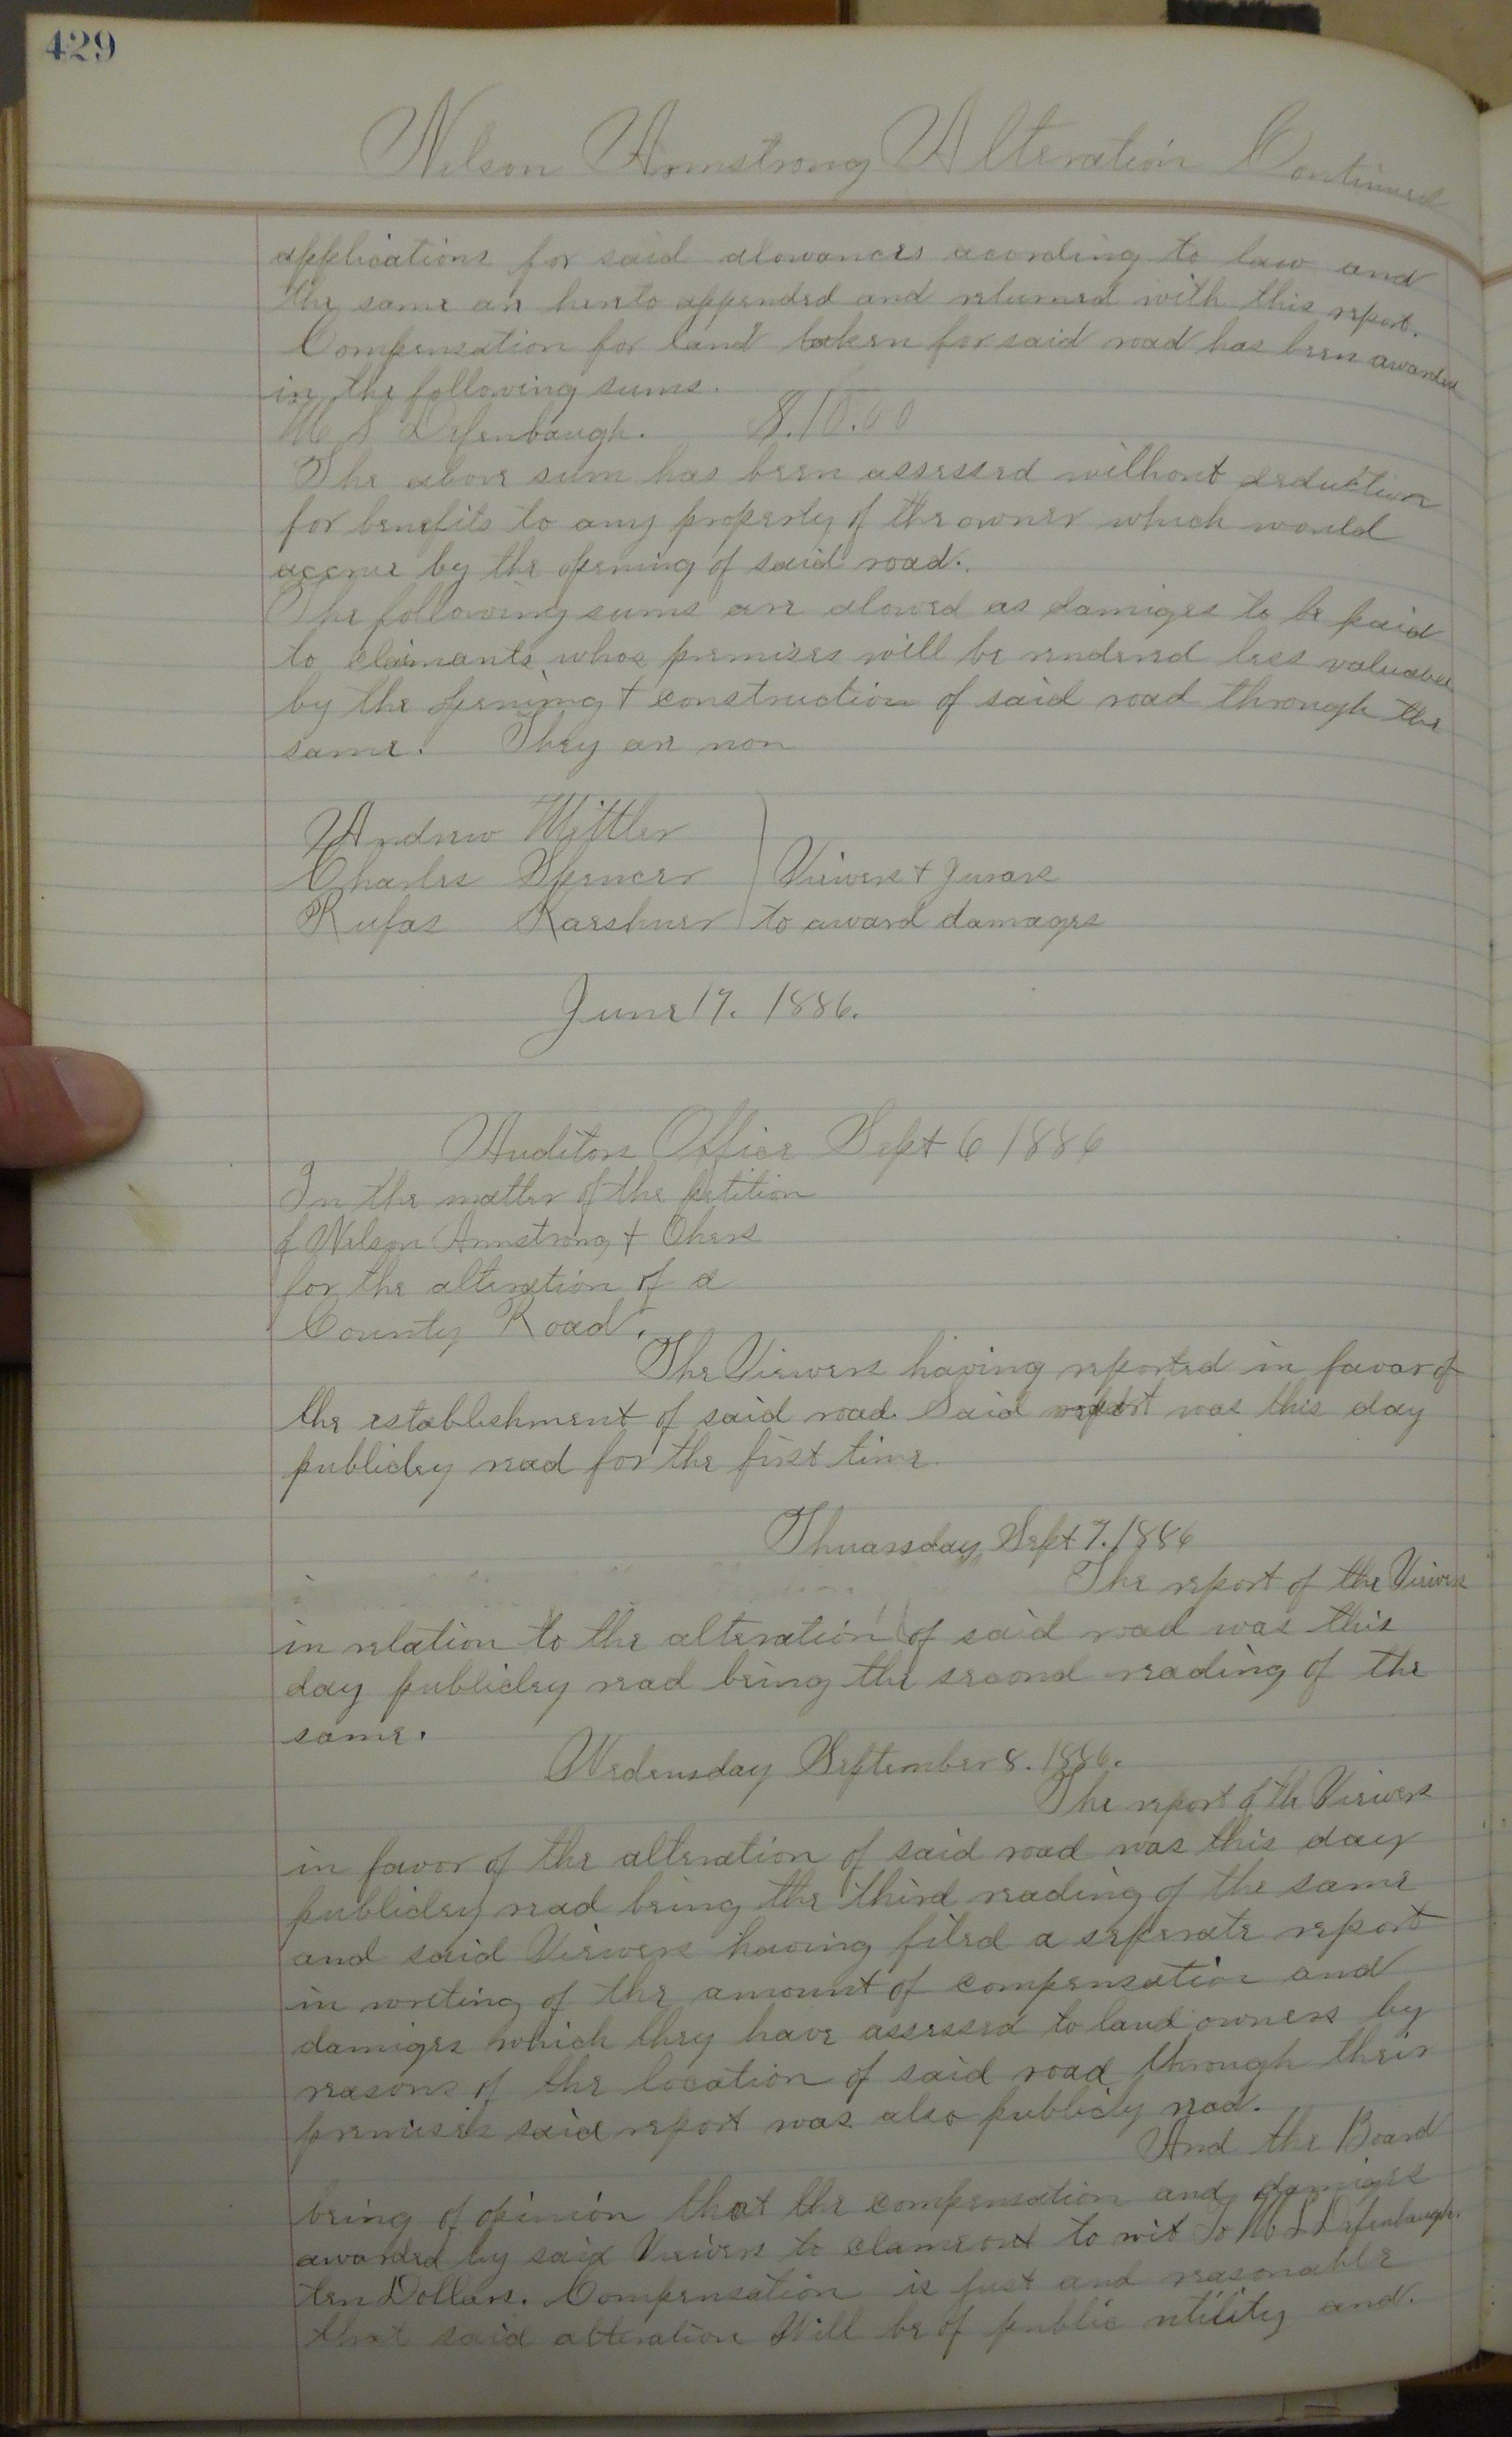 429
Nelson Armstrong Alteration Continued
applications for said alowances acording to law and
the same are hereto appended and returned with this report.
Compensation for land taken for said road has been awarded
in the following sums.
Defenbaugh. $.10.00
The above sum has been assessed without deduction
for benefits to any property of the owner which would
accrue by the opening of said road.
The following sums are alowed as damiges to be paid
to claimants whos premises will be rendered less valuabel
by the opening + construction of said road through the
same. They are non
Andrew
Charles Spencer Viewers + Jurors
Rufas Karshner to award damages
June 17. 1886.
Auditors Office Sept 6 1886
In the matter of the petition
of Nelson Armstrong + Ohers
for the alteration of a
County Road.
The Viewers having reported in favor of
the establishment of said road. Said report was this day
publicley read for the first time.
Thuarsday, Sept 7. 1886
The report of the Viewers
in relation to the alteration of said road was this
day publicley read being the second reading of the
same.
Wedensday September 8. 1886.
The report of the Viewers
in favor of the alteration of said road was this day
publicley read being the third reading of the same
and said Viewers having filed a seperate report
in writing of the amount of compensation and
damiges which they have assessed to land owners by
reasons of the location of said road through their
premises said report was also publicly read.
And the Board
being of opinion that the compensation and damiges
awarded by said Viewers to to wit To Defenbaugh.
ten Dollars. Compensation is just and reasonable
that said alteration Will be of public utility and.